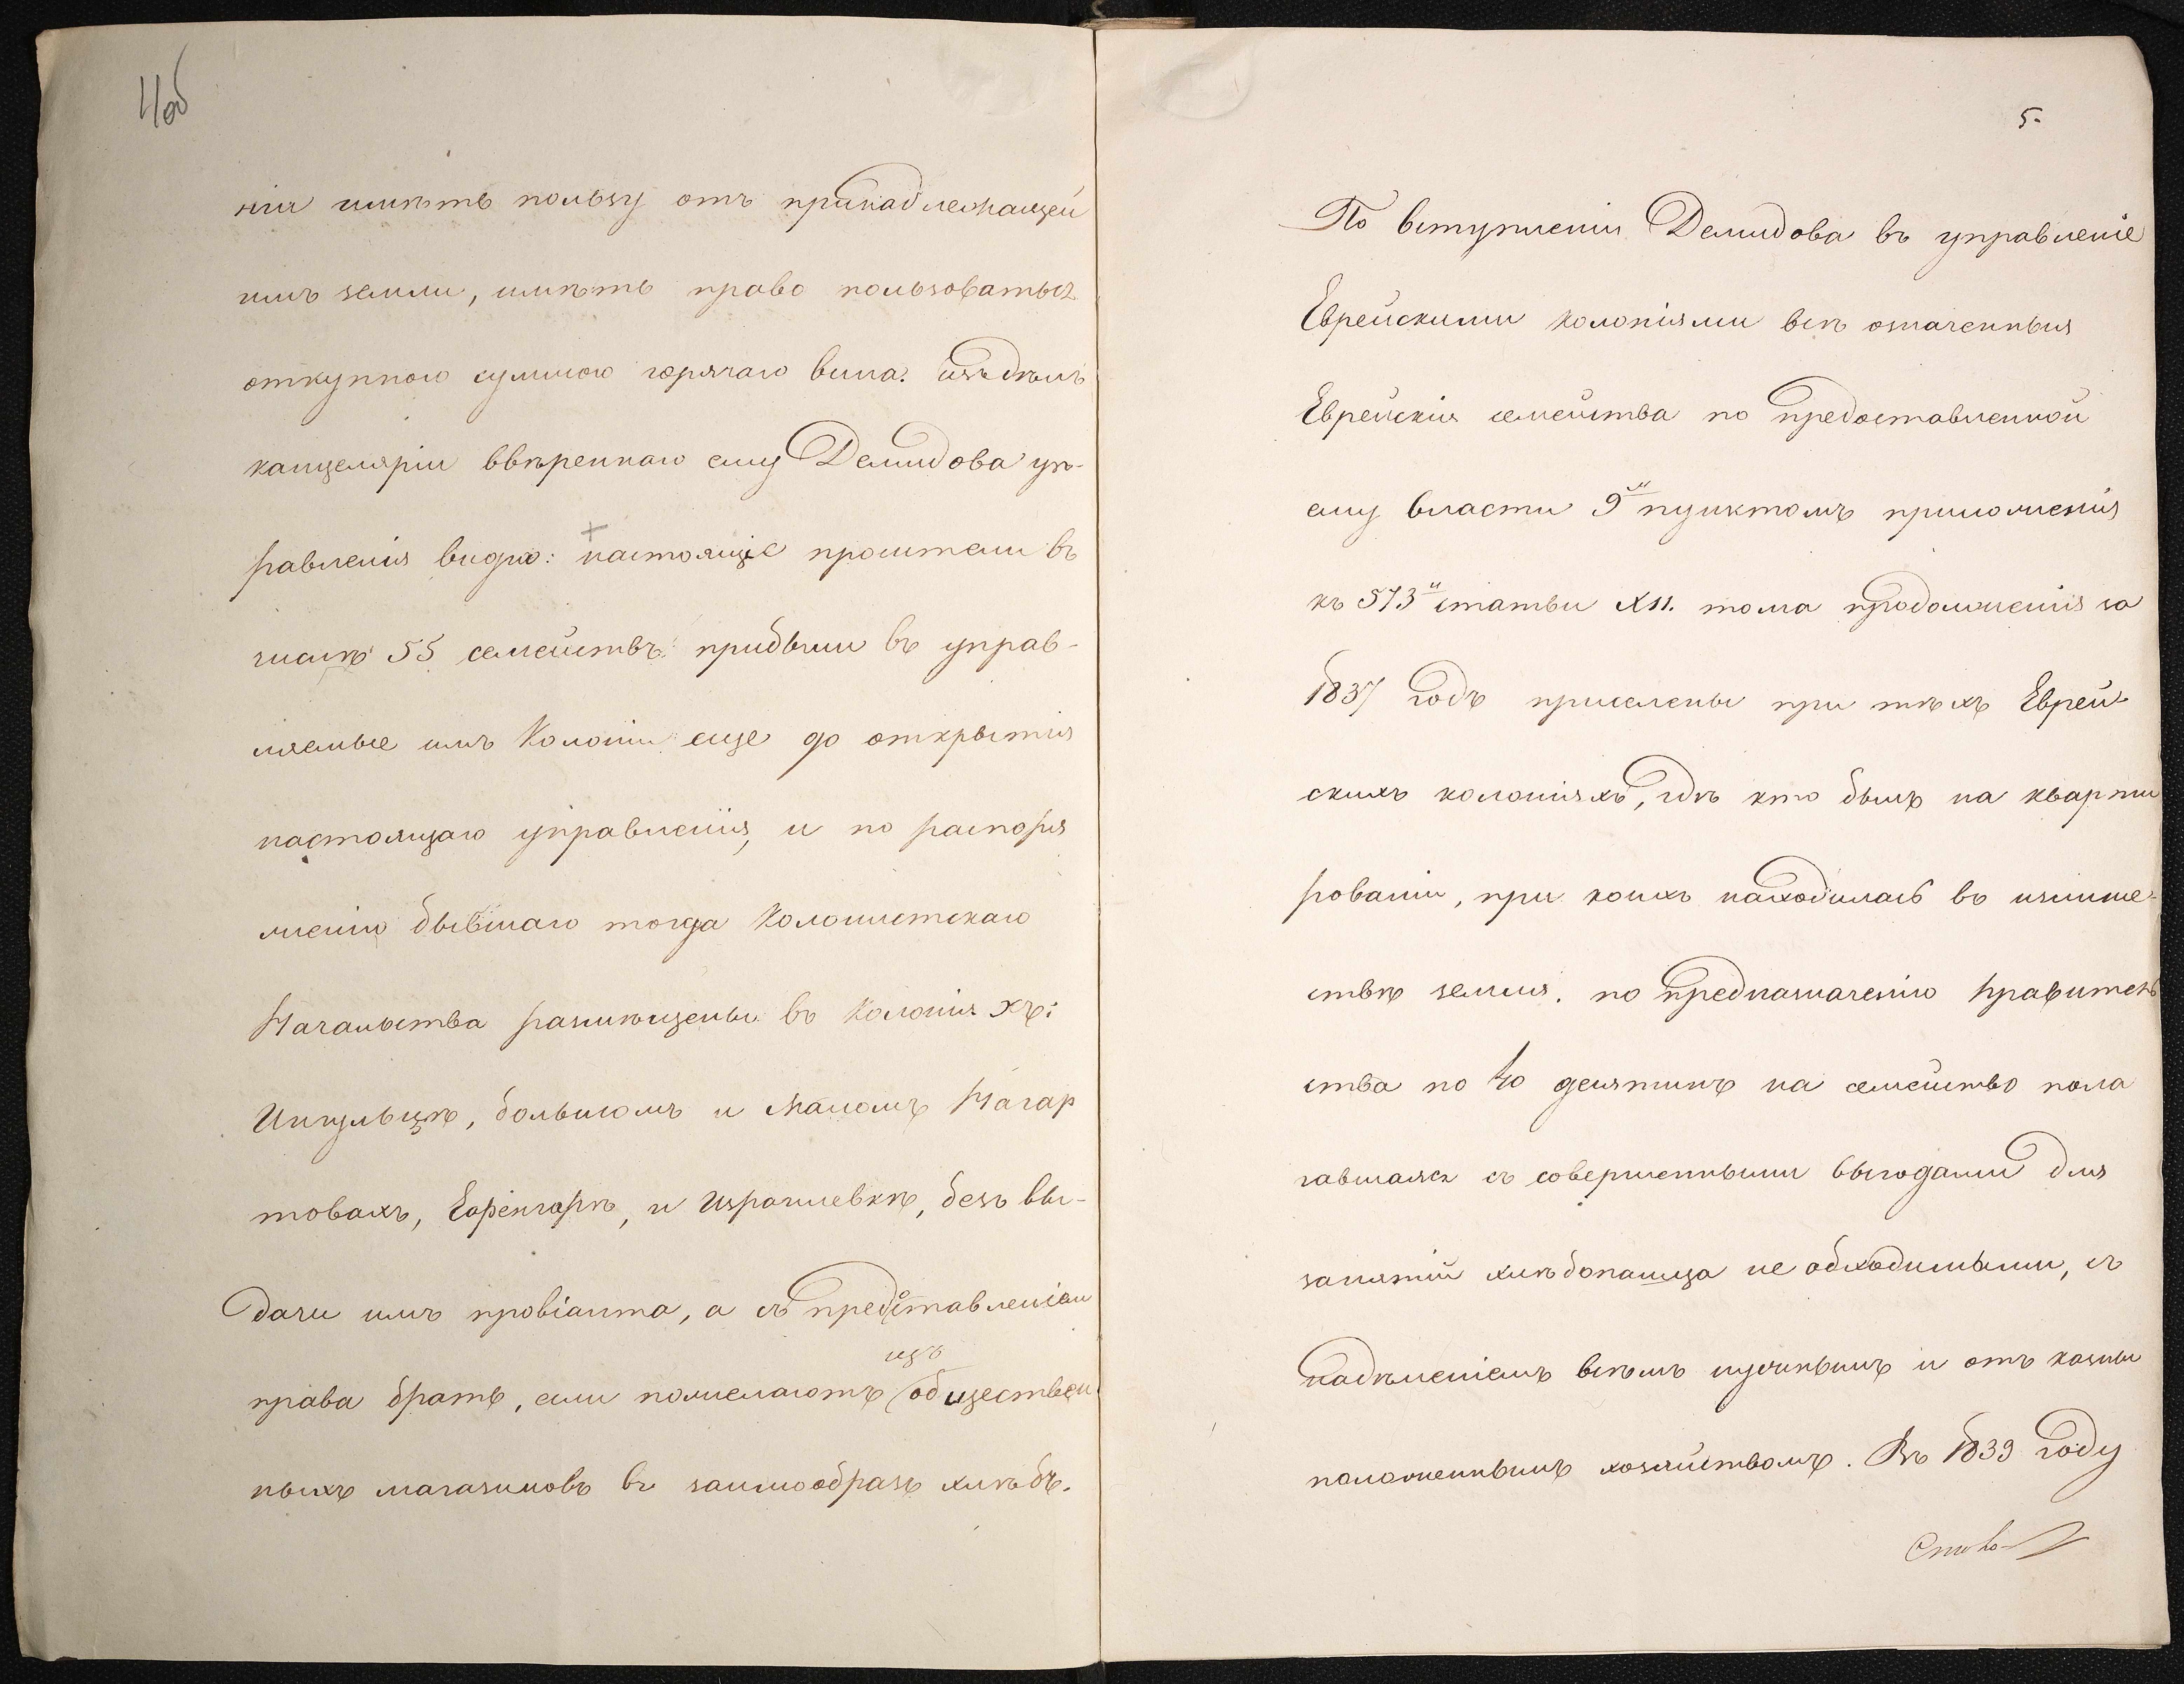 4об
нія имѣть пользу отъ принадлежащей
имъ земли, имѣть право пользоваться
откупною суммою горячаго вина. изъ дѣлъ
канцеляріи ввѣреннаго ему Демидова уп-
равленія видно: настоящіе просители въ
числѣ 55 семействъ прибыли въ управ-
ляемые имъ Колоніи еще до открытія
настоящаго управленія, и по распоря
женію бывшаго тогда Колонистскаго
Начальства размѣщены въ Колонія хъ:
Ингульцѣ, большомъ и Маломъ Нагар
товахъ, Ефенгарѣ, и Израилевкѣ, безъ вы-
дачи имъ провіанта, а съ предоставленіем
изъ
права брать, если пожелаютъ обществен
ныхъ магазиновъ въ заимообразъ хлѣбъ.
5.
По вступленіи Демидова въ управленіе
Еврейскими колоніями всѣ означенныя
Еврейскія семейства по предоставленной
ему власти 9м пунктомъ приложенія
къ 573й статьи XII. тома продолженія за
1837 годъ приселены при тѣхъ Еврей
скихъ колоніяхъ, гдѣ кто былъ на кварти
рованіи, при коихъ находилась въ излише-
ствѣ земля. по предназначенію правитель
ства по 40 десятинъ на семейство пола
гавшаяся съ совершенными выгодами для
занятій хлѣбопашца не обходимыми, съ
надѣленіемъ всѣмъ нужнымъ и отъ казны
положеннымъ хозяйствомъ. Въ 1839 году